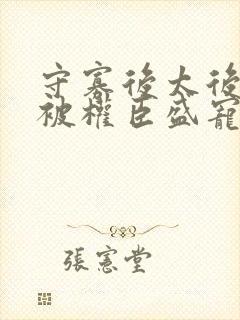 守寡後太後
被權臣盛寵
張憲堂